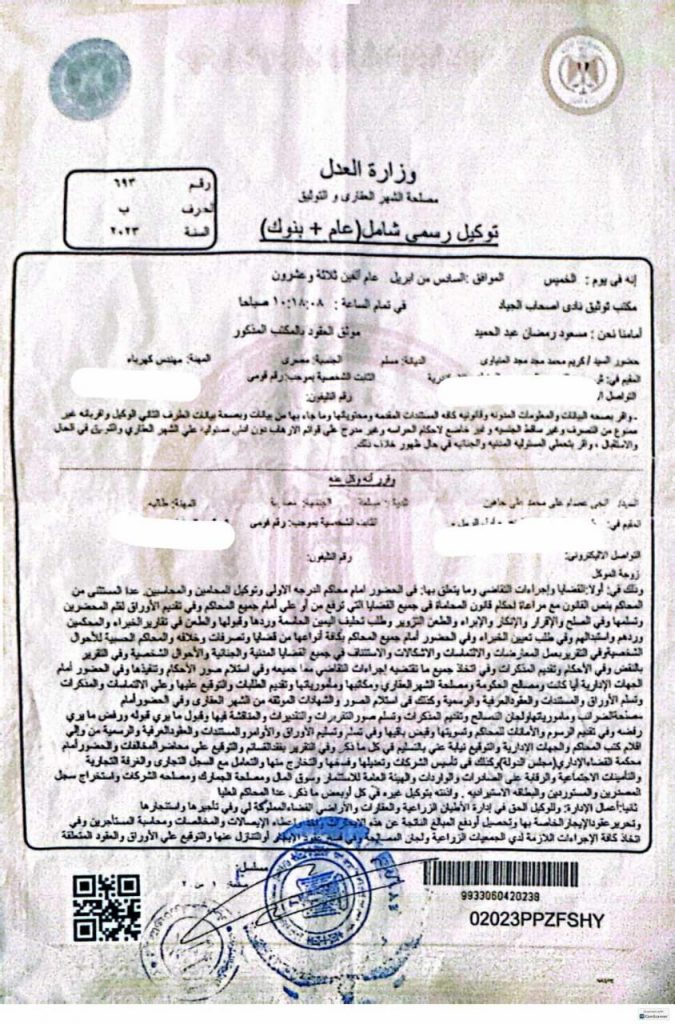 وزارة العدل
مصلحة الشهر العقارى و التوثيق
توكيل رسمى شامل(عام + بنوك)
رقم ٦٩٣
الحرف ب
السنة ٢٠٢٣
إنه فى يوم : الخميس الموافق :السادس من ابريل عام ألفين ثلاثة وعشرون
مكتب توثيق نادى اصحاب الجياد فى تمام الساعة : ١٠:١٨:٠٨ صباحا
أمامنا نحن : مسعود رمضان عبد الحميد موثق العقود بالمكتب المذكور
حضور السيد / كريم محمد مجد مجد المنياوى الديانة: مسلم الجنسية: مصرى المهنة: مهندس كهرباء
المقيم في: الثابت الشخصية بموجب: رقم قومى
التواصل رقم التليفون:
- واقر بصحه البيانات والمعلومات المدونه وقانونية كافه المستندات المقدمه ومحتوياتها وما جاء بها من بيانات وبصحة بيانات الطرف الثاني الوكيل واقر بانه غير
ممنوع من التصرف وغير ساقط الجنسيه و غير خاضع لاحكام الحراسه وغير مدرج علي قوائم الارهاب دون ادنى مسئولية علي الشهر العقاري والتوثيق في الحال
والاستقبال ، واقر بتحملي المسئوليه المدنيه والجنائيه في حال ظهور خلاف ذلك
وقرر أنه وكل عنه
عصام على محمد على الديانة: مسلمة الجنسية: مصرية المهنة: طالبه
المقيم في: الثابت الشخصية بموجب: رقم قومى
التواصل الاليكترونى: رقم التليفون:
زوجة الموكل
وذلك في: أولا: القضايا وإجراءات التقاضي وما يتعلق بها: في الحضور امام محاكم الدرجه الاولى وتوكيل المحامين والمحاسبين. عدا المستثنى من
المحاكم بنص القانون مع مراعاة احكام قانون المحاماة فى جميع القضايا التي ترفع من أو علي أمام جميع المحاكم وفي تقديم الأوراق لقلم المحضرين
وتسلمها وفي الصلح والإقرار والإنكار والإبراء والطعن بالتزوير وطلب تحليف اليمين الحاسمة وردها وقبولها والطعن في تقارير الخبراء والمحكمين
وردهم واستبدالهم وفي طلب تعيين الخبراء وفي الحضور أمام جميع المحاكم بكافة أنواعها من قضايا وتصرفات وخلافه والمحاكم الحسبية للأحوال
الشخصية وفي التقرير بعمل المعارضات والالتماسات والاشكالات والاستئناف في جميع القضايا المدنية والجنائية والأحوال الشخصية وفي التقرير
بالنقض وفي الأحكام وتقديم المذكرات وفي اتخاذ جميع ما تقتضيه إجراءات التقاضي مما جميعه وفي استلام صور الأحكام وتنفيذها وفي الحضور أمام
الجهات الإدارية أيا كانت ومصالح الحكومة ومصلحة الشهر العقاري ومكاتبها ومأمورياتها وتقديم الطلبات والتوقيع عليها وعلي الالتماسات والمذكرات
وتسلم الأوراق والمستندات والعقود العرفية والرسمية وكذلك في استلام الصور والشهادات الموثقه من الشهر العقارى وفى الحضور أمام
مصلحة الضرائب ومأمورياتها ولجان التصالح وتقديم المذكرات وتسلم صور التقريرات والتقديرات والمناقشة فيها وقبول ما يري قبوله ورفض ما يري
رفضه وفي تقديم الرسوم والأمانات للمحاكم وتسويتها وقبض باقيها وفي تسلم وتسليم الأوراق والأوامر والمستندات والعقود العرفية والرسمية من وإلي
اقلام كتب المحاكم والجهات الإدارية والتوقيع نيابة عني بالتسليم في كل ما ذكر وفي التقرير بفقد القسائم والتوقيع علي محاضر المخالفات والحضور أمام
محكمة القضاء الإداري(مجلس الدولة)وكذلك في تأسيس الشركات وتعديلها وفسخها والتخارج منها والتعامل مع السجل التجارى والغرفة التجارية
والتأمينات الاجتماعية والرقابة على الصادرات والواردات والهيئة العامة للاستثمار وسوق المال ومصلحة الجمارك ومصلحه الشركات واستخراج سجل
المصدرين والمستوردين والبطاقه الاستيراديه . وأذنته بتوكيل غيره فى كل أو بعض ما ذكر. عدا المحاكم العليا
ثانيا:أعمال الإدارة: وللوكيل الحق في إدارة الأطيان الزراعية والعقارات والأراضي الفضاء المملوكة لي وفي تأجيرها واستئجارها
وتحرير عقود الإيجار الخاصة بها وتحصيل أو دفع المبالغ الناتجة عن هذه وإعطاء الإيصالات والمخالصات ومحاسبة المستأجرين وفي
اتخاذ كافة الإجراءات اللازمة لدي الجمعيات الزراعية ولجان الإيجار أو التنازل عنها والتوقيع علي الأوراق والعقود المتعلقة
مسلسل
صفحة ١ من ٢
9933060420239
02023PPZFSHY